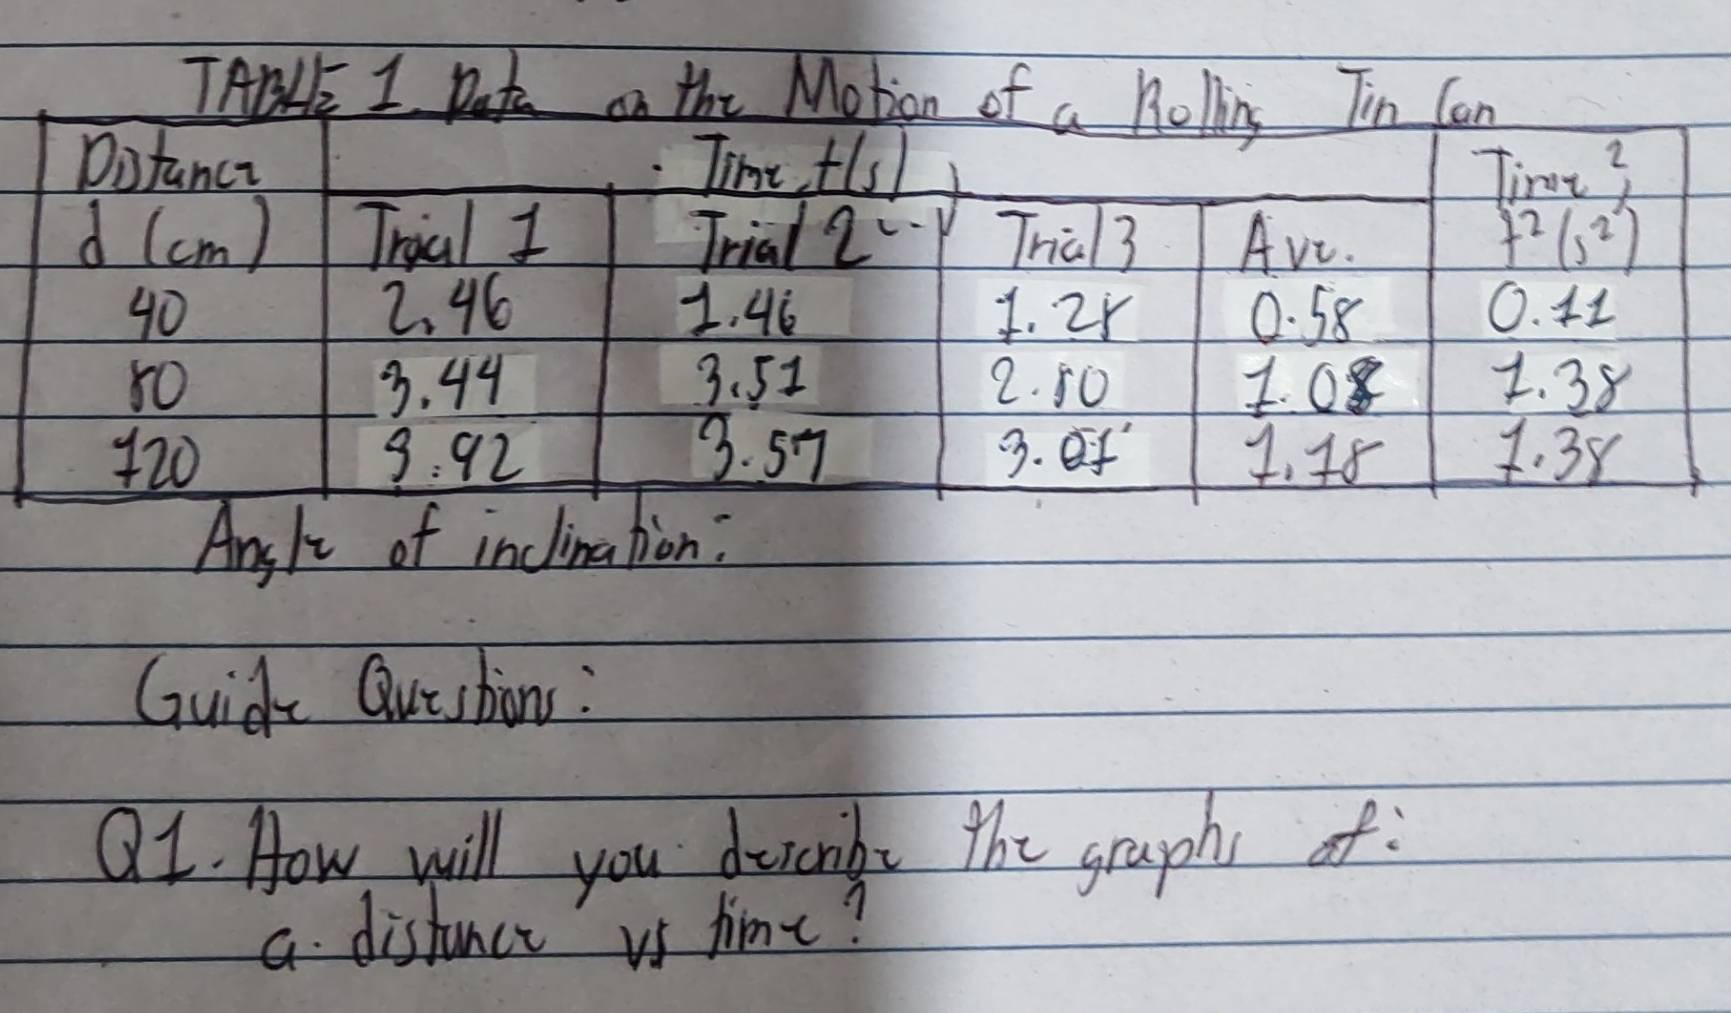 TABLE 1. Data on the Motion of a Rolling Tin Can
Distance Time, t(s) Time²,
d (cm) Trial 1 Trial 2 Trial 3 Ave. t²(s²)
40 2.46 1.46 1.28 0.58 0.11
80 3.44 3.51 2.80 1.08 1.38
120 3.92 3.57 3.01 1.18 1.38
Angle of inclination:
Guide Questions:
Q1. How will you describe the graphs of:
a. distance vs time?